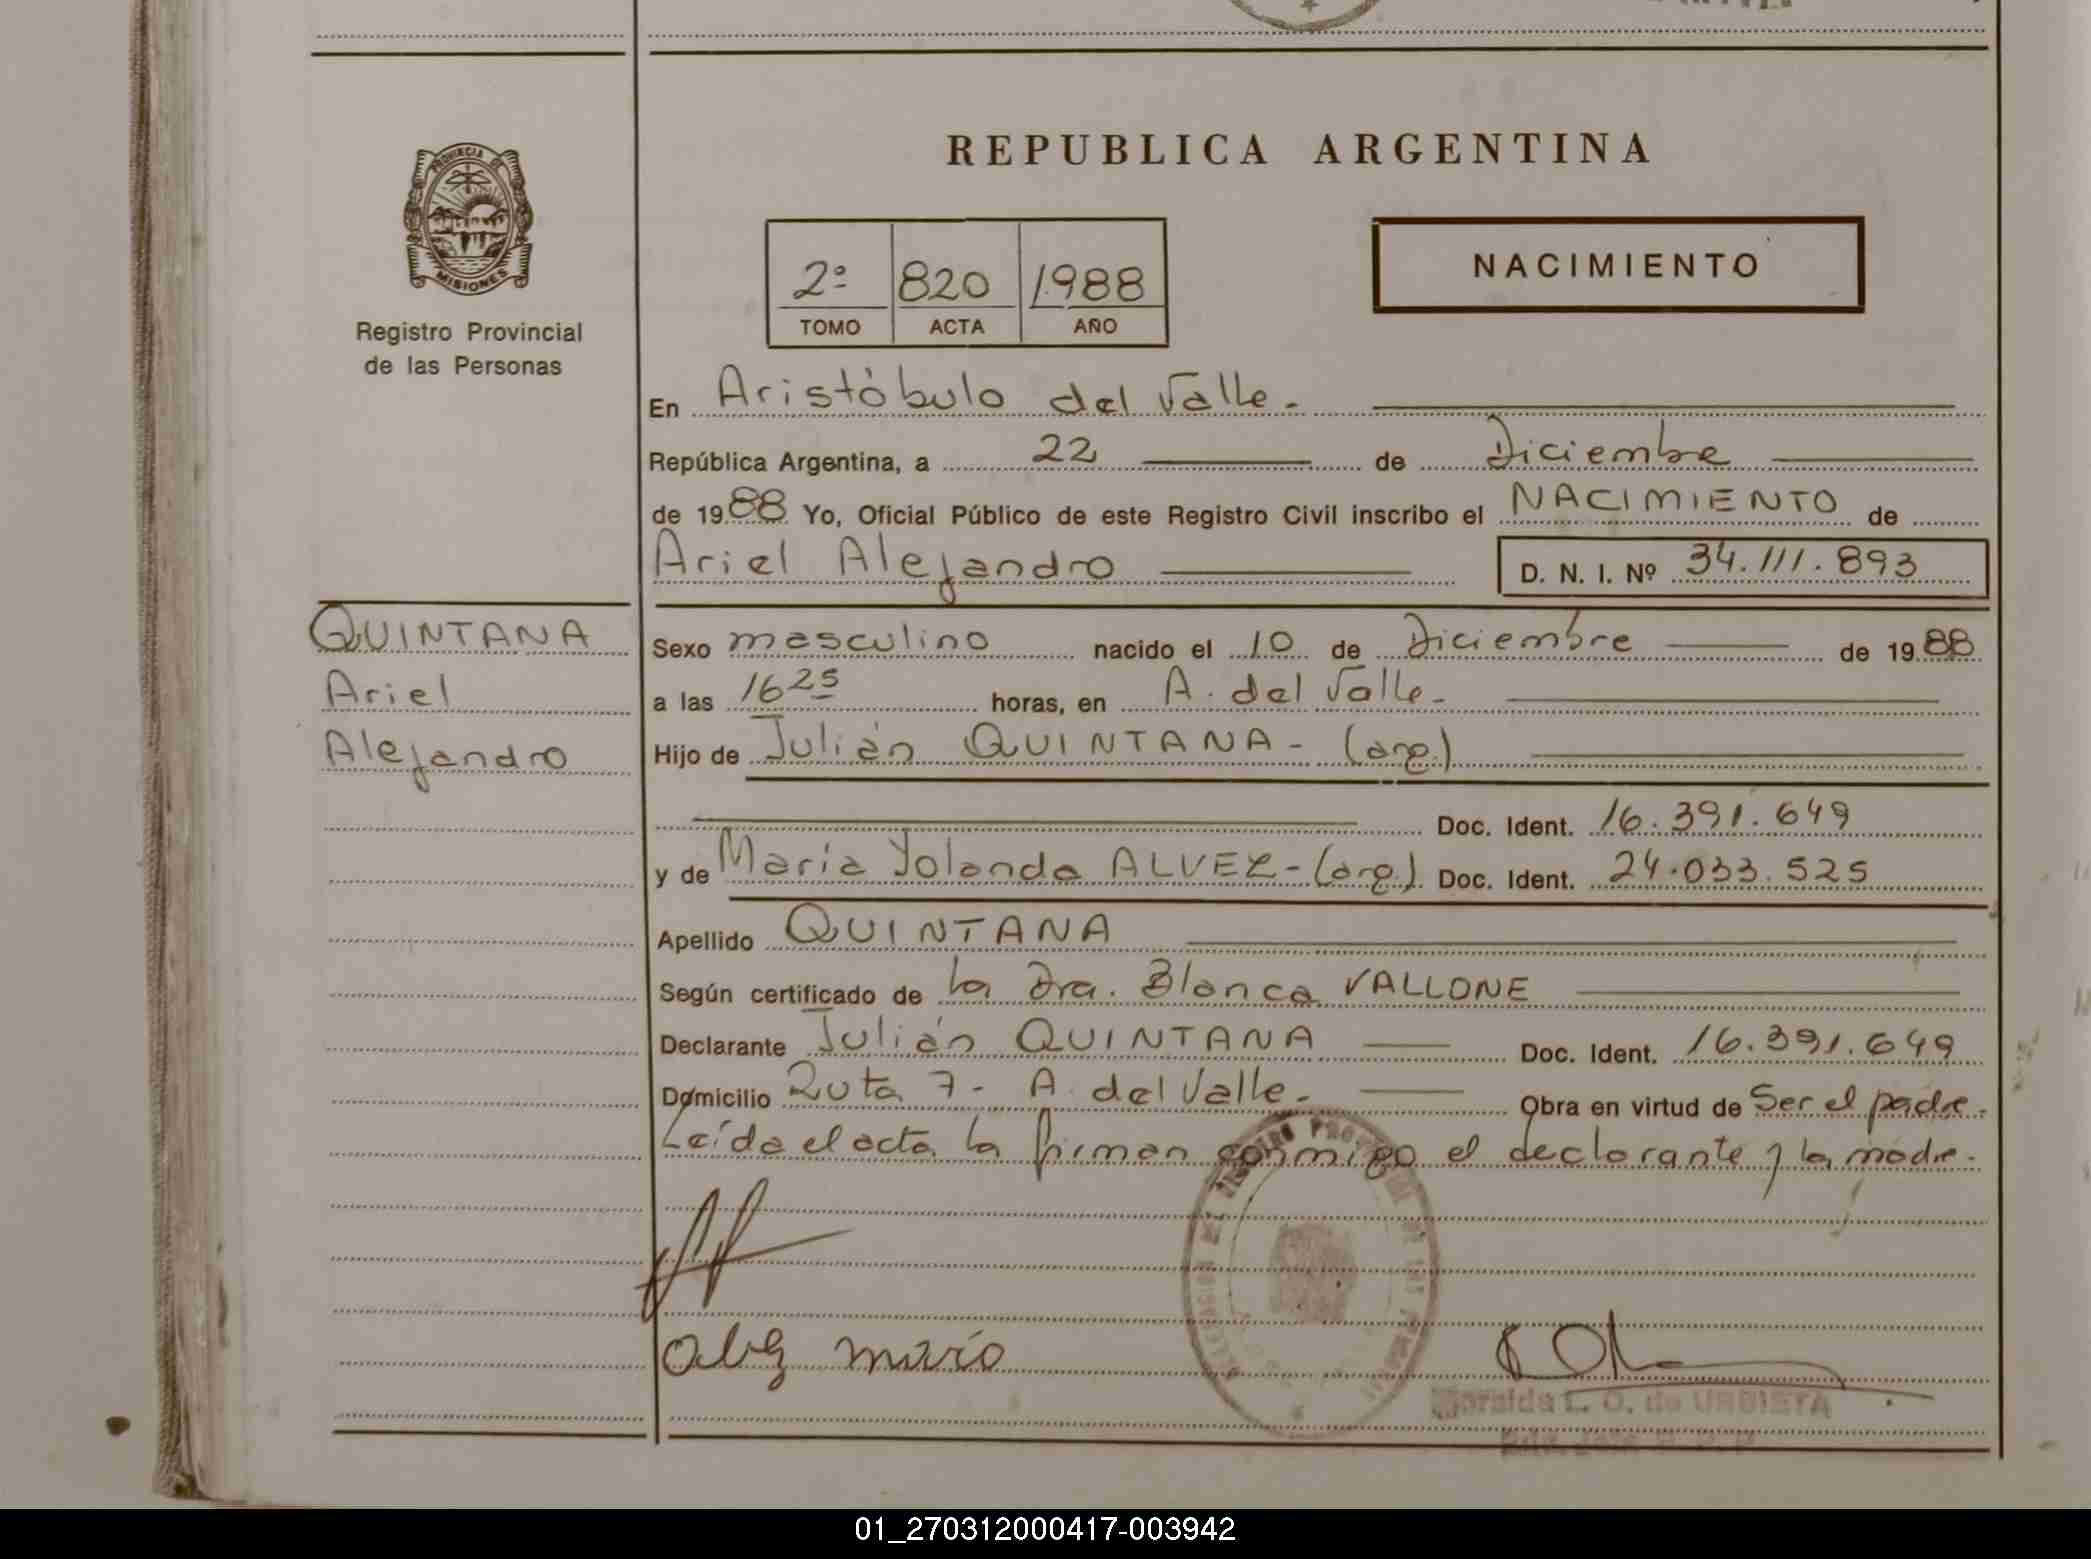 REPUBLICA ARGENTINA
PROVINCIA DE
MISIONES
Registro Provincial
de las Personas
2º 820 1988
TOMO ACTA AÑO
NACIMIENTO
En Aristóbulo del Valle.-
República Argentina, a 22 de Diciembre
de 1988 Yo, Oficial Público de este Registro Civil inscribo el NACIMIENTO de
Ariel Alejandro D. N. I. Nº 34.111.893
QUINTANA
Ariel
Alejandro
Sexo masculino nacido el 10 de Diciembre de 1988
a las 16 25 horas, en A. del Valle.-
Hijo de Julián QUINTANA- (arg.)
Doc. Ident. 16.391.649
y de María Yolanda ALVEZ-(arg.) Doc. Ident. 24.033.525
Apellido QUINTANA
Según certificado de la Dra. Blanca VALLONE
Declarante Julián QUINTANA Doc. Ident. 16.391.649
Domicilio Ruta 7- A. del Valle.- Obra en virtud de Ser el padre.
Leída el acta la firman conmigo el declarante y la madre.
maría
L. O. de URBIETA
01_270312000417-003942